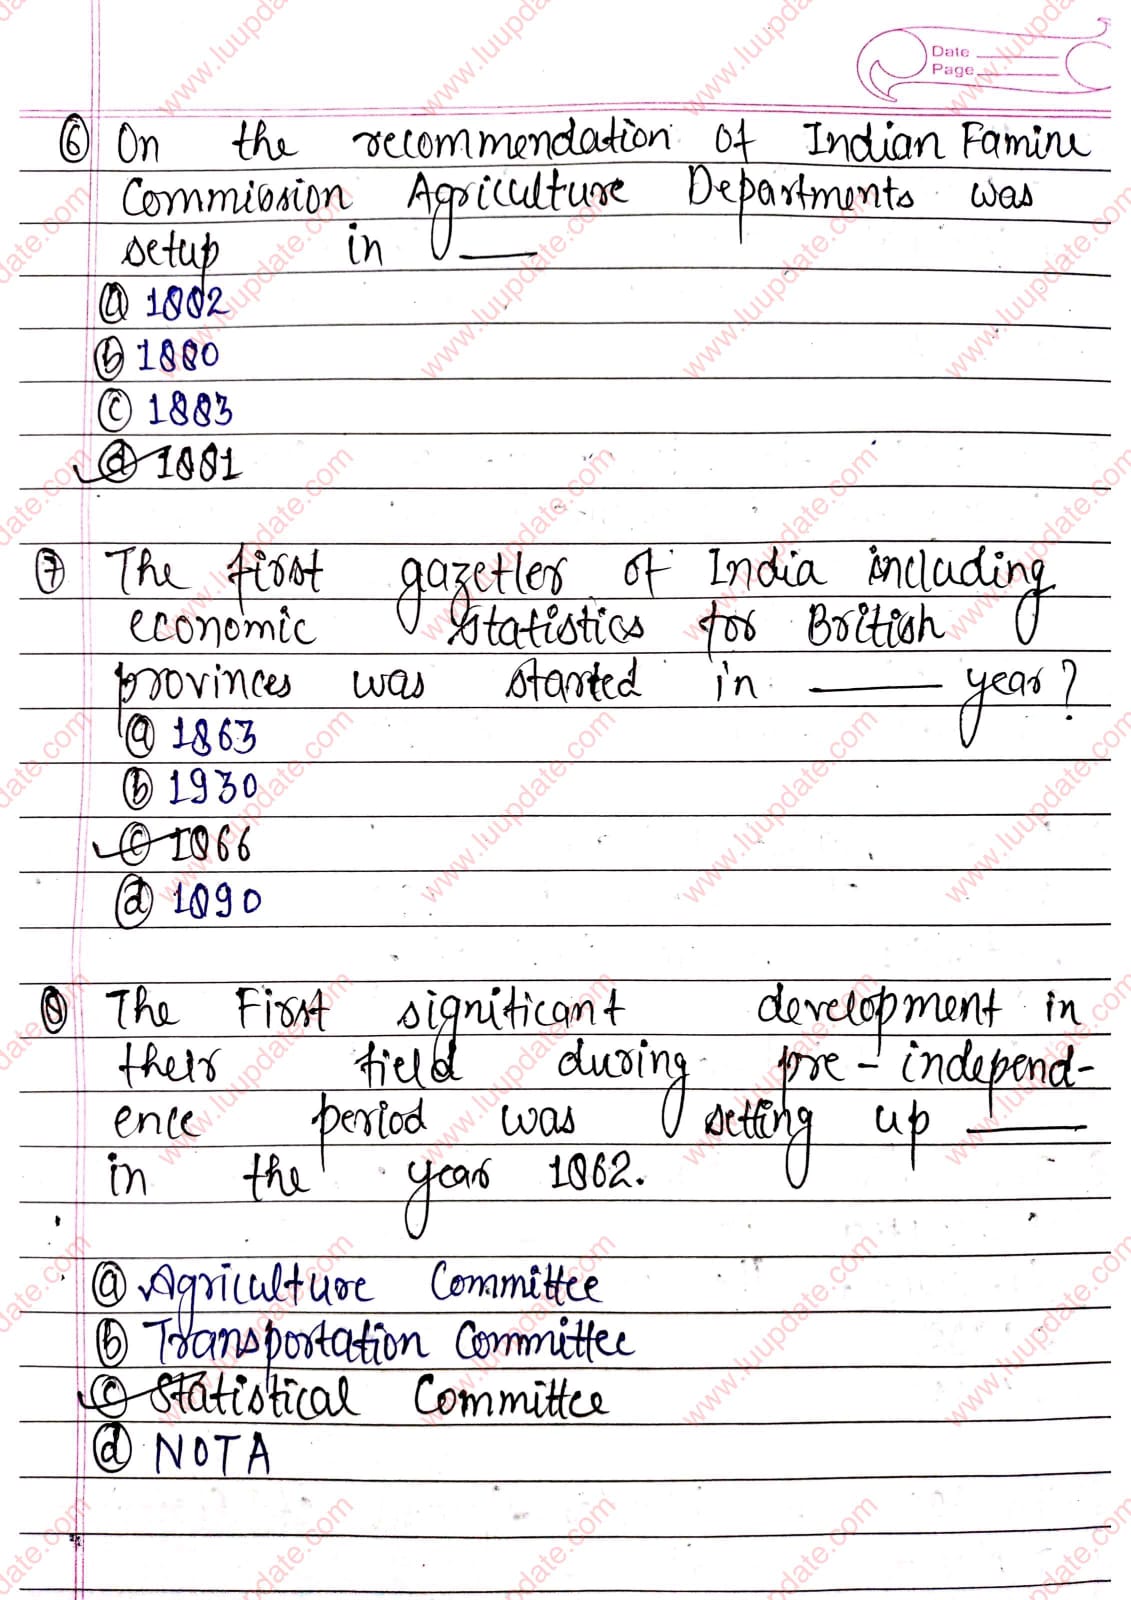 Date
Page
⑥ On the recommendation of Indian Famine
Commission Agriculture Departments was
setup in ____
ⓐ 1882
ⓑ 1880
ⓒ 1883
ⓓ 1881
⑦ The first gazetler of India including
economic statistics for British
provinces was started in ____ year?
ⓐ 1863
ⓑ 1930
ⓒ 1866
ⓓ 1890
⑧ The First significant development in
their field during pre-independ-
ence period was setting up ____
in the year 1862.
ⓐ Agriculture Committee
ⓑ Transportation Committee
ⓒ Statistical Committee
ⓓ NOTA
www.luupdate.com